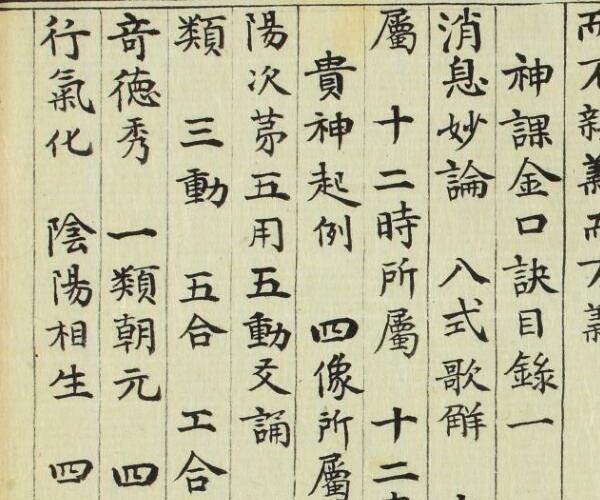 神課金口訣目錄一
消息妙論 八式歌觧
屬 十二時所屬 十二
貴神起例 四像所屬
陽次苐五用五動爻誦
類 三動 五合 工合
竒德秀 一類朝元 四
行氣化 陰陽相生 四